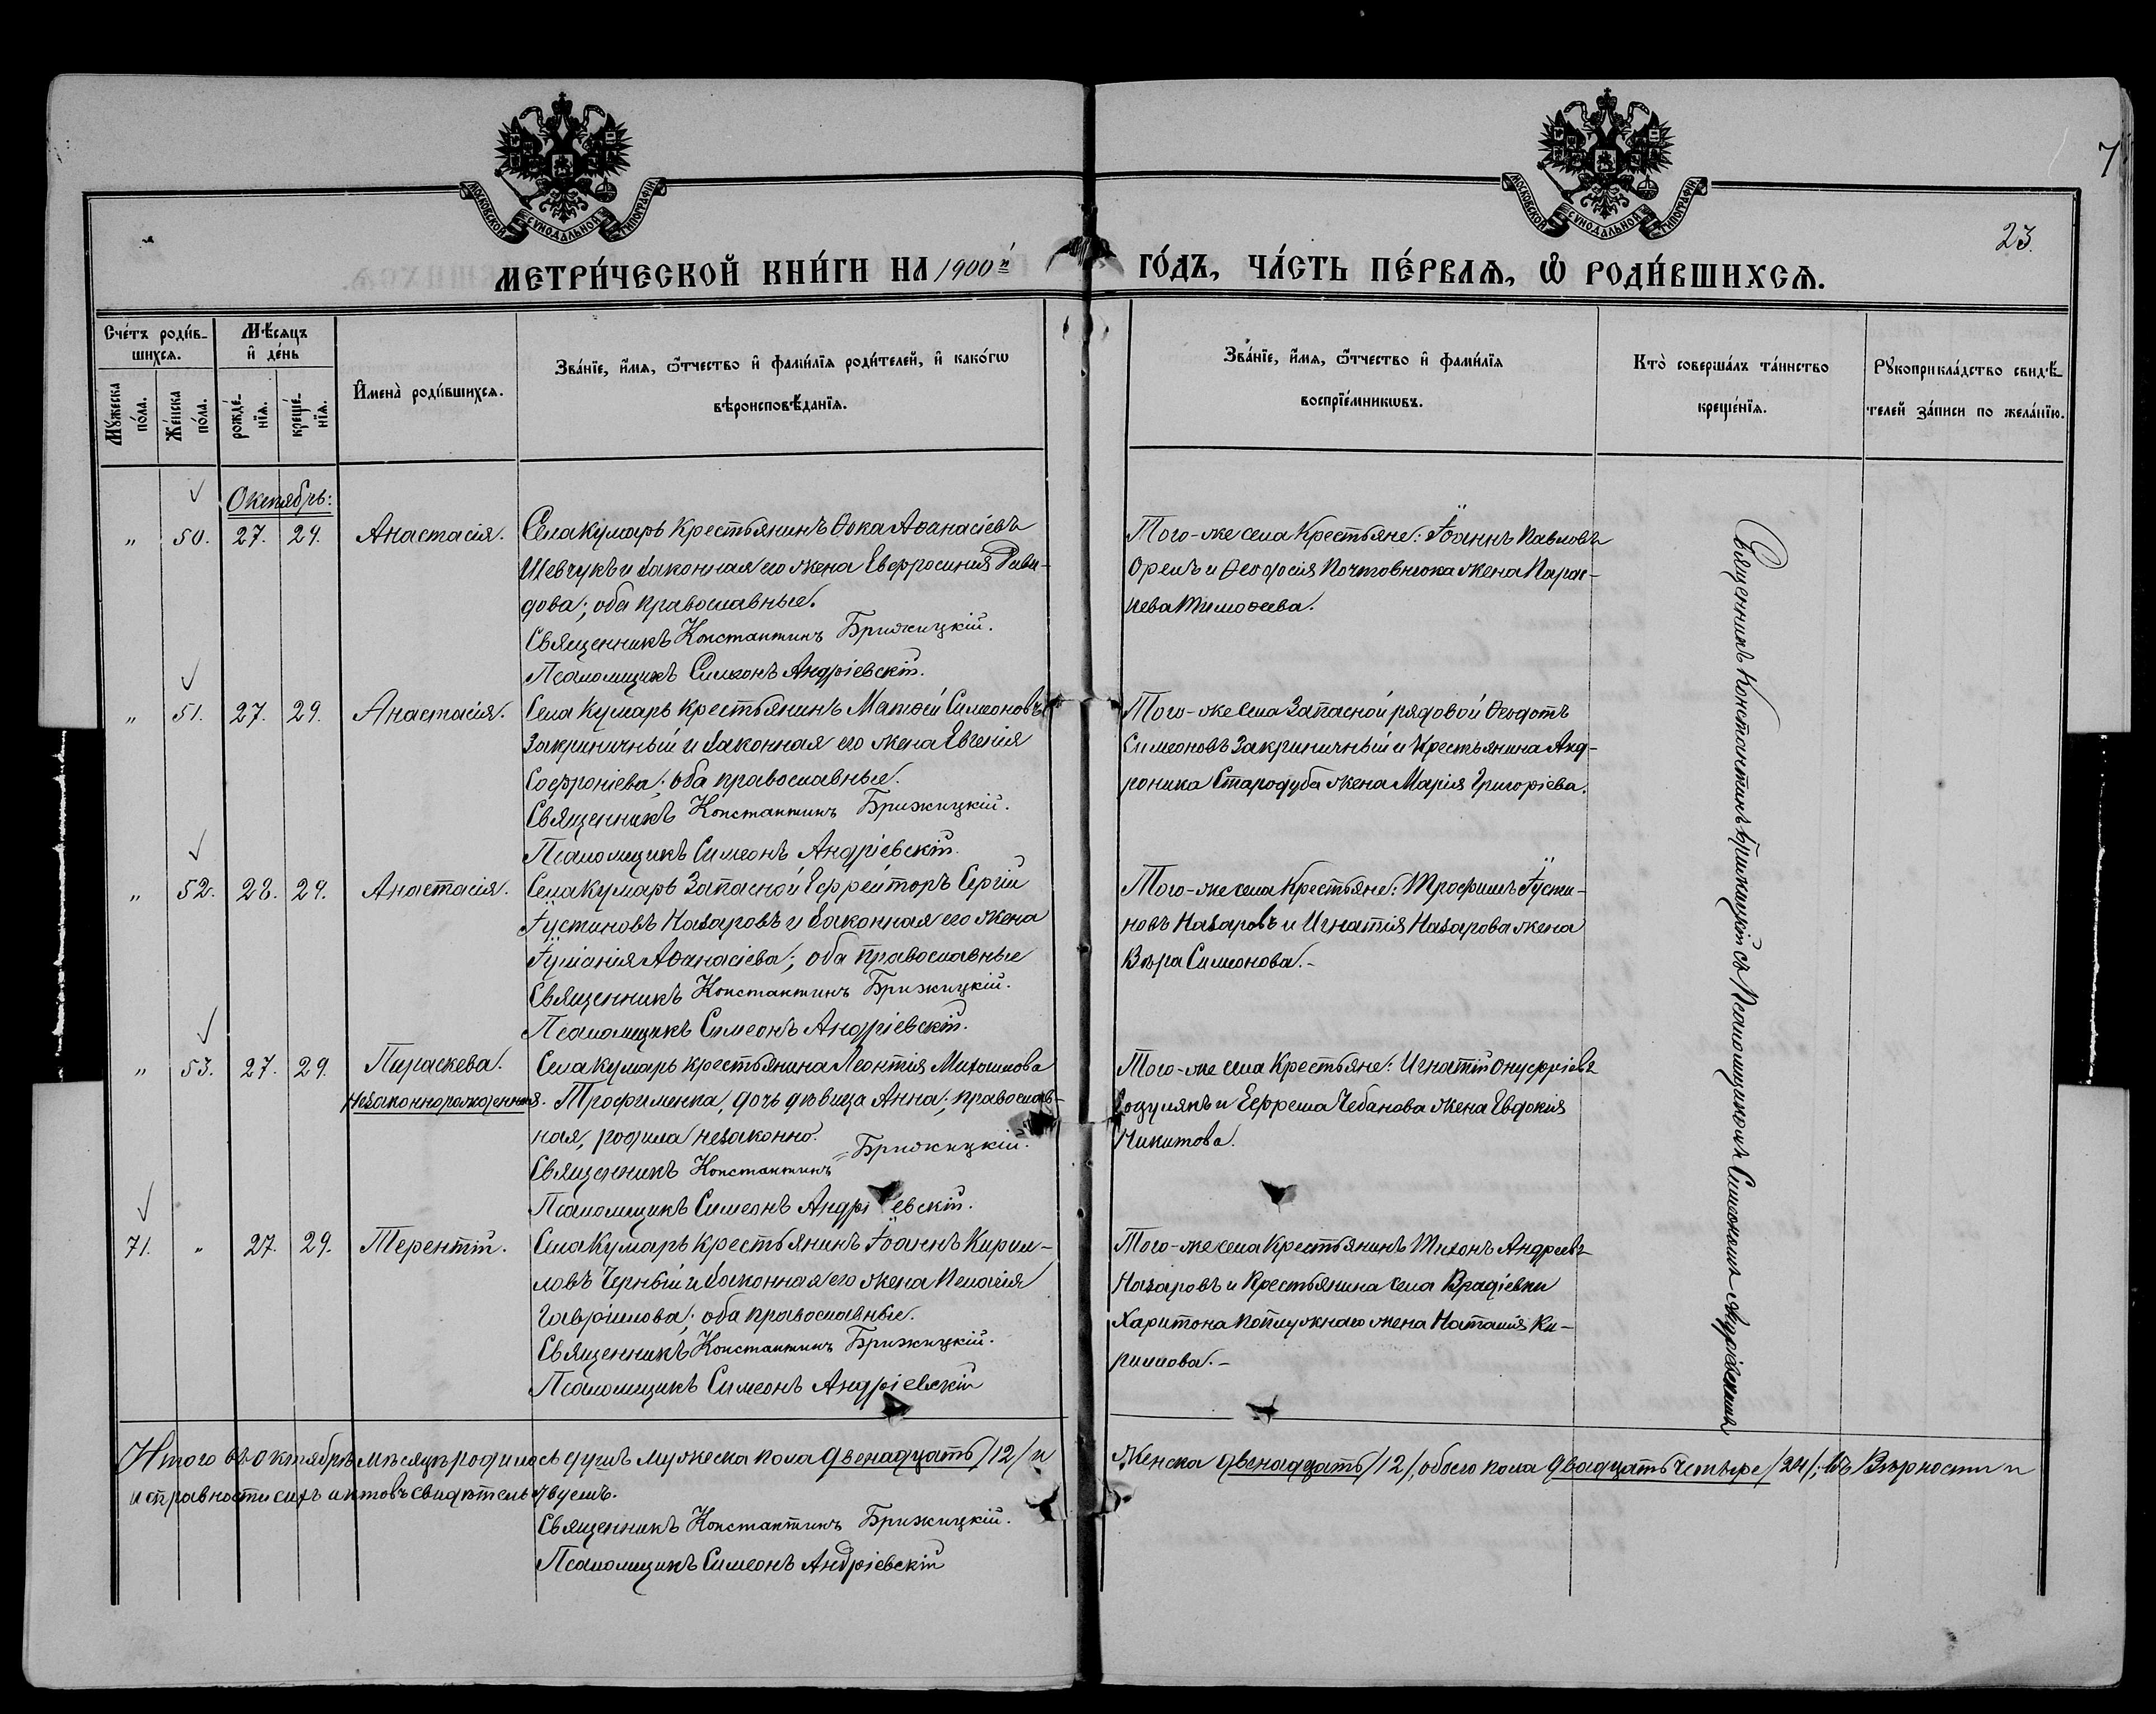 МОСКОВСКОЙ СѴНОДАЛЬНОЙ ТИПОГРАФІИ
МОСКОВСКОЙ СѴНОДАЛЬНОЙ ТИПОГРАФІИ
7
23.
МЕТРИ́ЧЕСКОЙ КНИ́ГИ НА 1900й ГО́ДЪ, ЧА́СТЬ ПЕ́РВАѦ, Ѽ РОДИ́ВШИХСѦ.
Сче́тъ роди́в-
шихсѧ.
Мѣ́сѧцъ
и҆ де́нь
Мꙋ́жеска
по́ла.
Же́нска
по́ла.
рожде́-
нїѧ.
креще́-
нїѧ.
И҆мена̀ роди́вшихсѧ.
Зва́нїе, и҆́мѧ, ѻ҆́тчество и҆ фами́лїѧ роди́телей, и҆ како́гѡ
вѣроисповѣ́данїѧ.
Зва́нїе, и҆́мѧ, ѻ҆́тчество и҆ фами́лїѧ
воспрїе́мникѡвъ.
Кто̀ соверша́лъ та́инство
креще́нїѧ.
Рꙋкоприкла́дство свидѣ́-
телей за́писи по жела́нїю.
Октябрь:
„ 50. 27. 29. Анастасія. Села Кумарь крестьянинъ Ѳока Аѳанасіевъ
Шевчукъ и законная его жена Евфросинія Дави-
дова; оба православные.
Священникъ Константинъ Брижицкій.
Псаломщикъ Симеонъ Андріевскій.
Того-же села крестьяне: Іоаннъ Павловъ
Орелъ и Ѳеодосія жена Парас-
кева Тимоѳеева.
„ 51. 27. 29. Анастасія. Села Кумарь крестьянинъ Матѳей Симеоновъ
Закриничный и законная его жена Евгенія
Софроніева; оба православные.
Священникъ Константинъ Брижицкій.
Псаломщикъ Симеонъ Андріевскій.
Того-же села запасной рядовой Ѳеодотъ
Симеоновъ Закриничный и крестьянина Анд-
роника Стародуба жена Марія Григоріева.
„ 52. 28. 29. Анастасія. Села Кумарь запасной Ефрейторъ Сергій
Іустиновъ Назаровъ и законная его жена
Іуліанія Аѳанасіева; оба православные
Священникъ Константинъ Брижицкій.
Псаломщикъ Симеонъ Андріевскій.
Того-же села крестьяне: Трофимъ Іусти-
новъ Назаровъ и Игнатія Назарова жена
Вѣра Симеонова.-
„ 53. 27. 29. Параскева. Села Кумарь крестьянина Леонтія Михайлова
Незаконнорожденная. Трофименка, дочь дѣвица Анна; православ-
ная, родила незаконно.
Священникъ Константинъ Брижицкій.
Псаломщикъ Симеонъ Андріевскій.
Того-же села крестьяне: Игнатій Онуфріевъ
Гоцулякъ и Ефрема Чебанова жена Евдокія
Никитова.
71. „ 27. 29. Терентій. Села Кумарь крестьянинъ Іоаннъ Кирил-
ловъ Черный и законная его жена Пелагія
Гавріилова; оба православные.
Священникъ Константинъ Брижицкій.
Псаломщикъ Симеонъ Андріевскій
Того-же села крестьянинъ Тихонъ Андреевъ
Назаровъ и крестьянина села Врадіевки
Харитона жена Наталія Ки-
риллова.-
Священникъ Константинъ Брижицкій съ Псаломщикомъ Симеономъ Андріевскимъ
Итого въ октябрѣ мѣсяцѣ родилось душъ мужеска пола двенадцать /12/ и женска двенадцать /12/, обоего пола двадцать четыре /24/; въ вѣрности и
исправности сихъ актовъ свидѣтельствуемъ.
Священникъ Константинъ Брижицкій.
Псаломщикъ Симеонъ Андріевскій